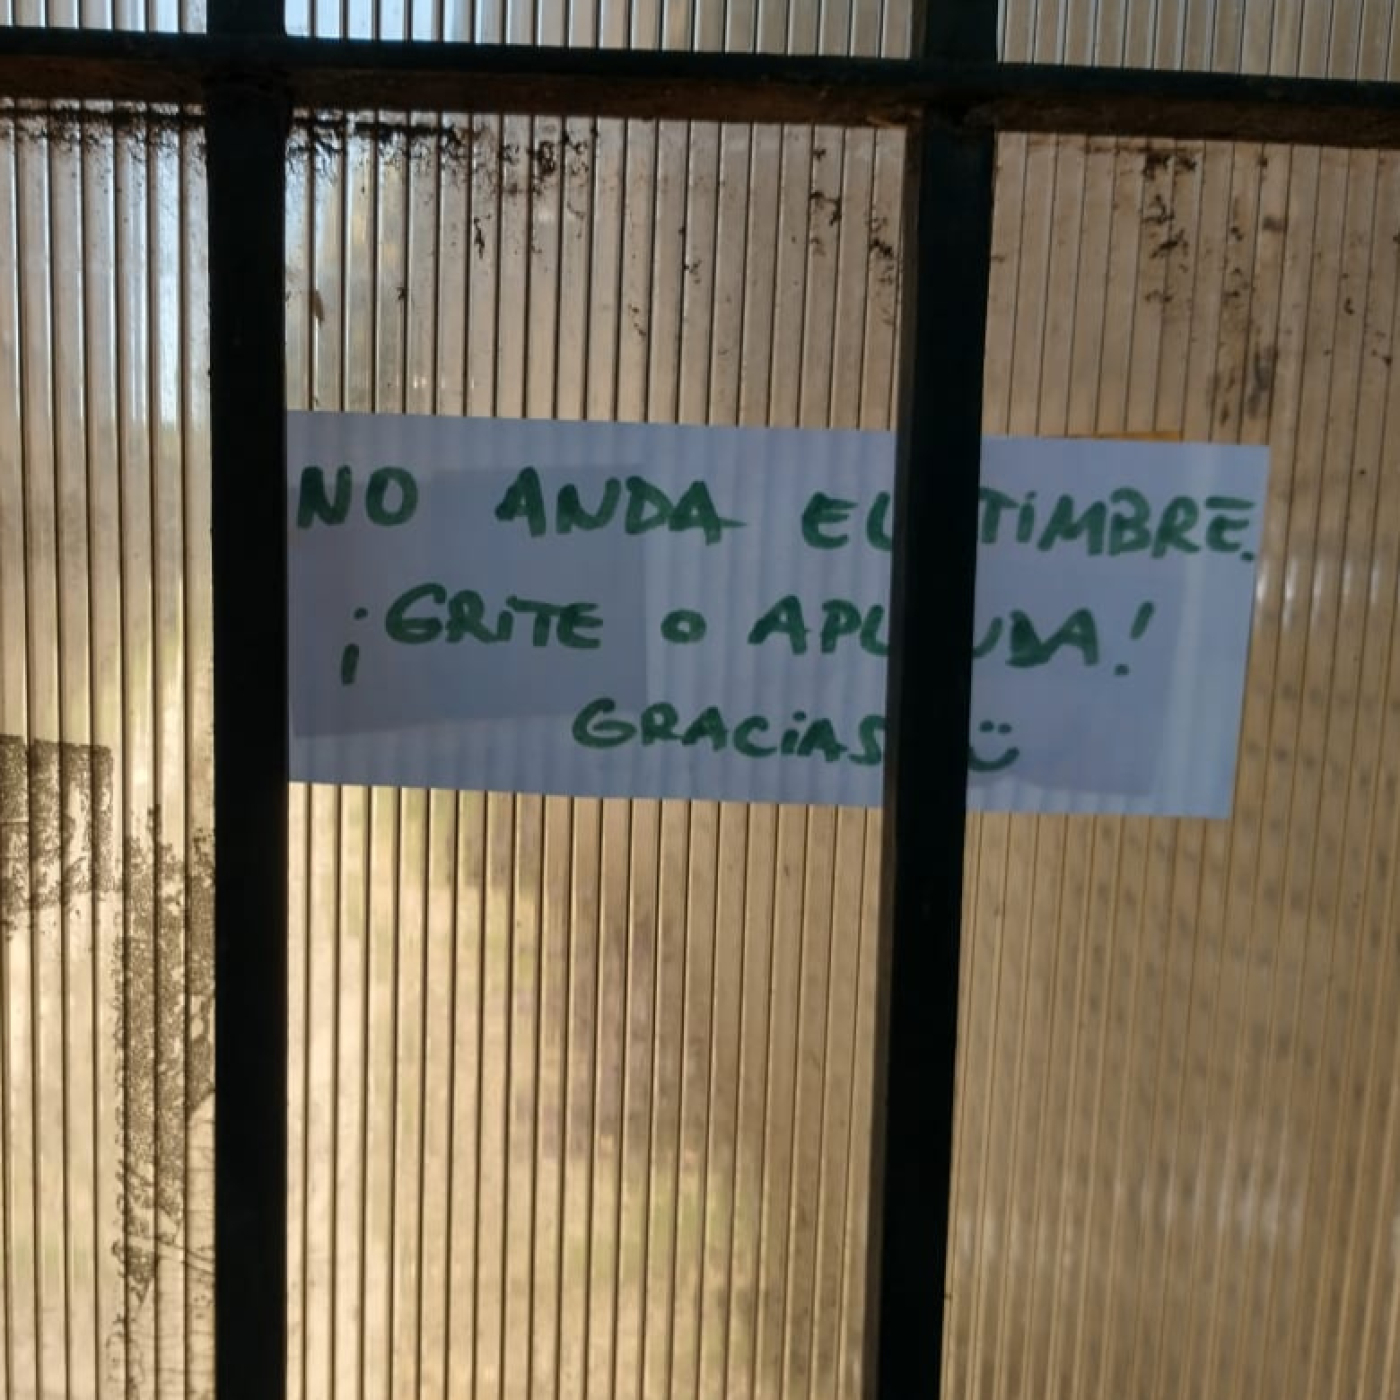 NO ANDA EL TIMBRE.
¡GRITE O APLAUDA!
GRACIAS :)